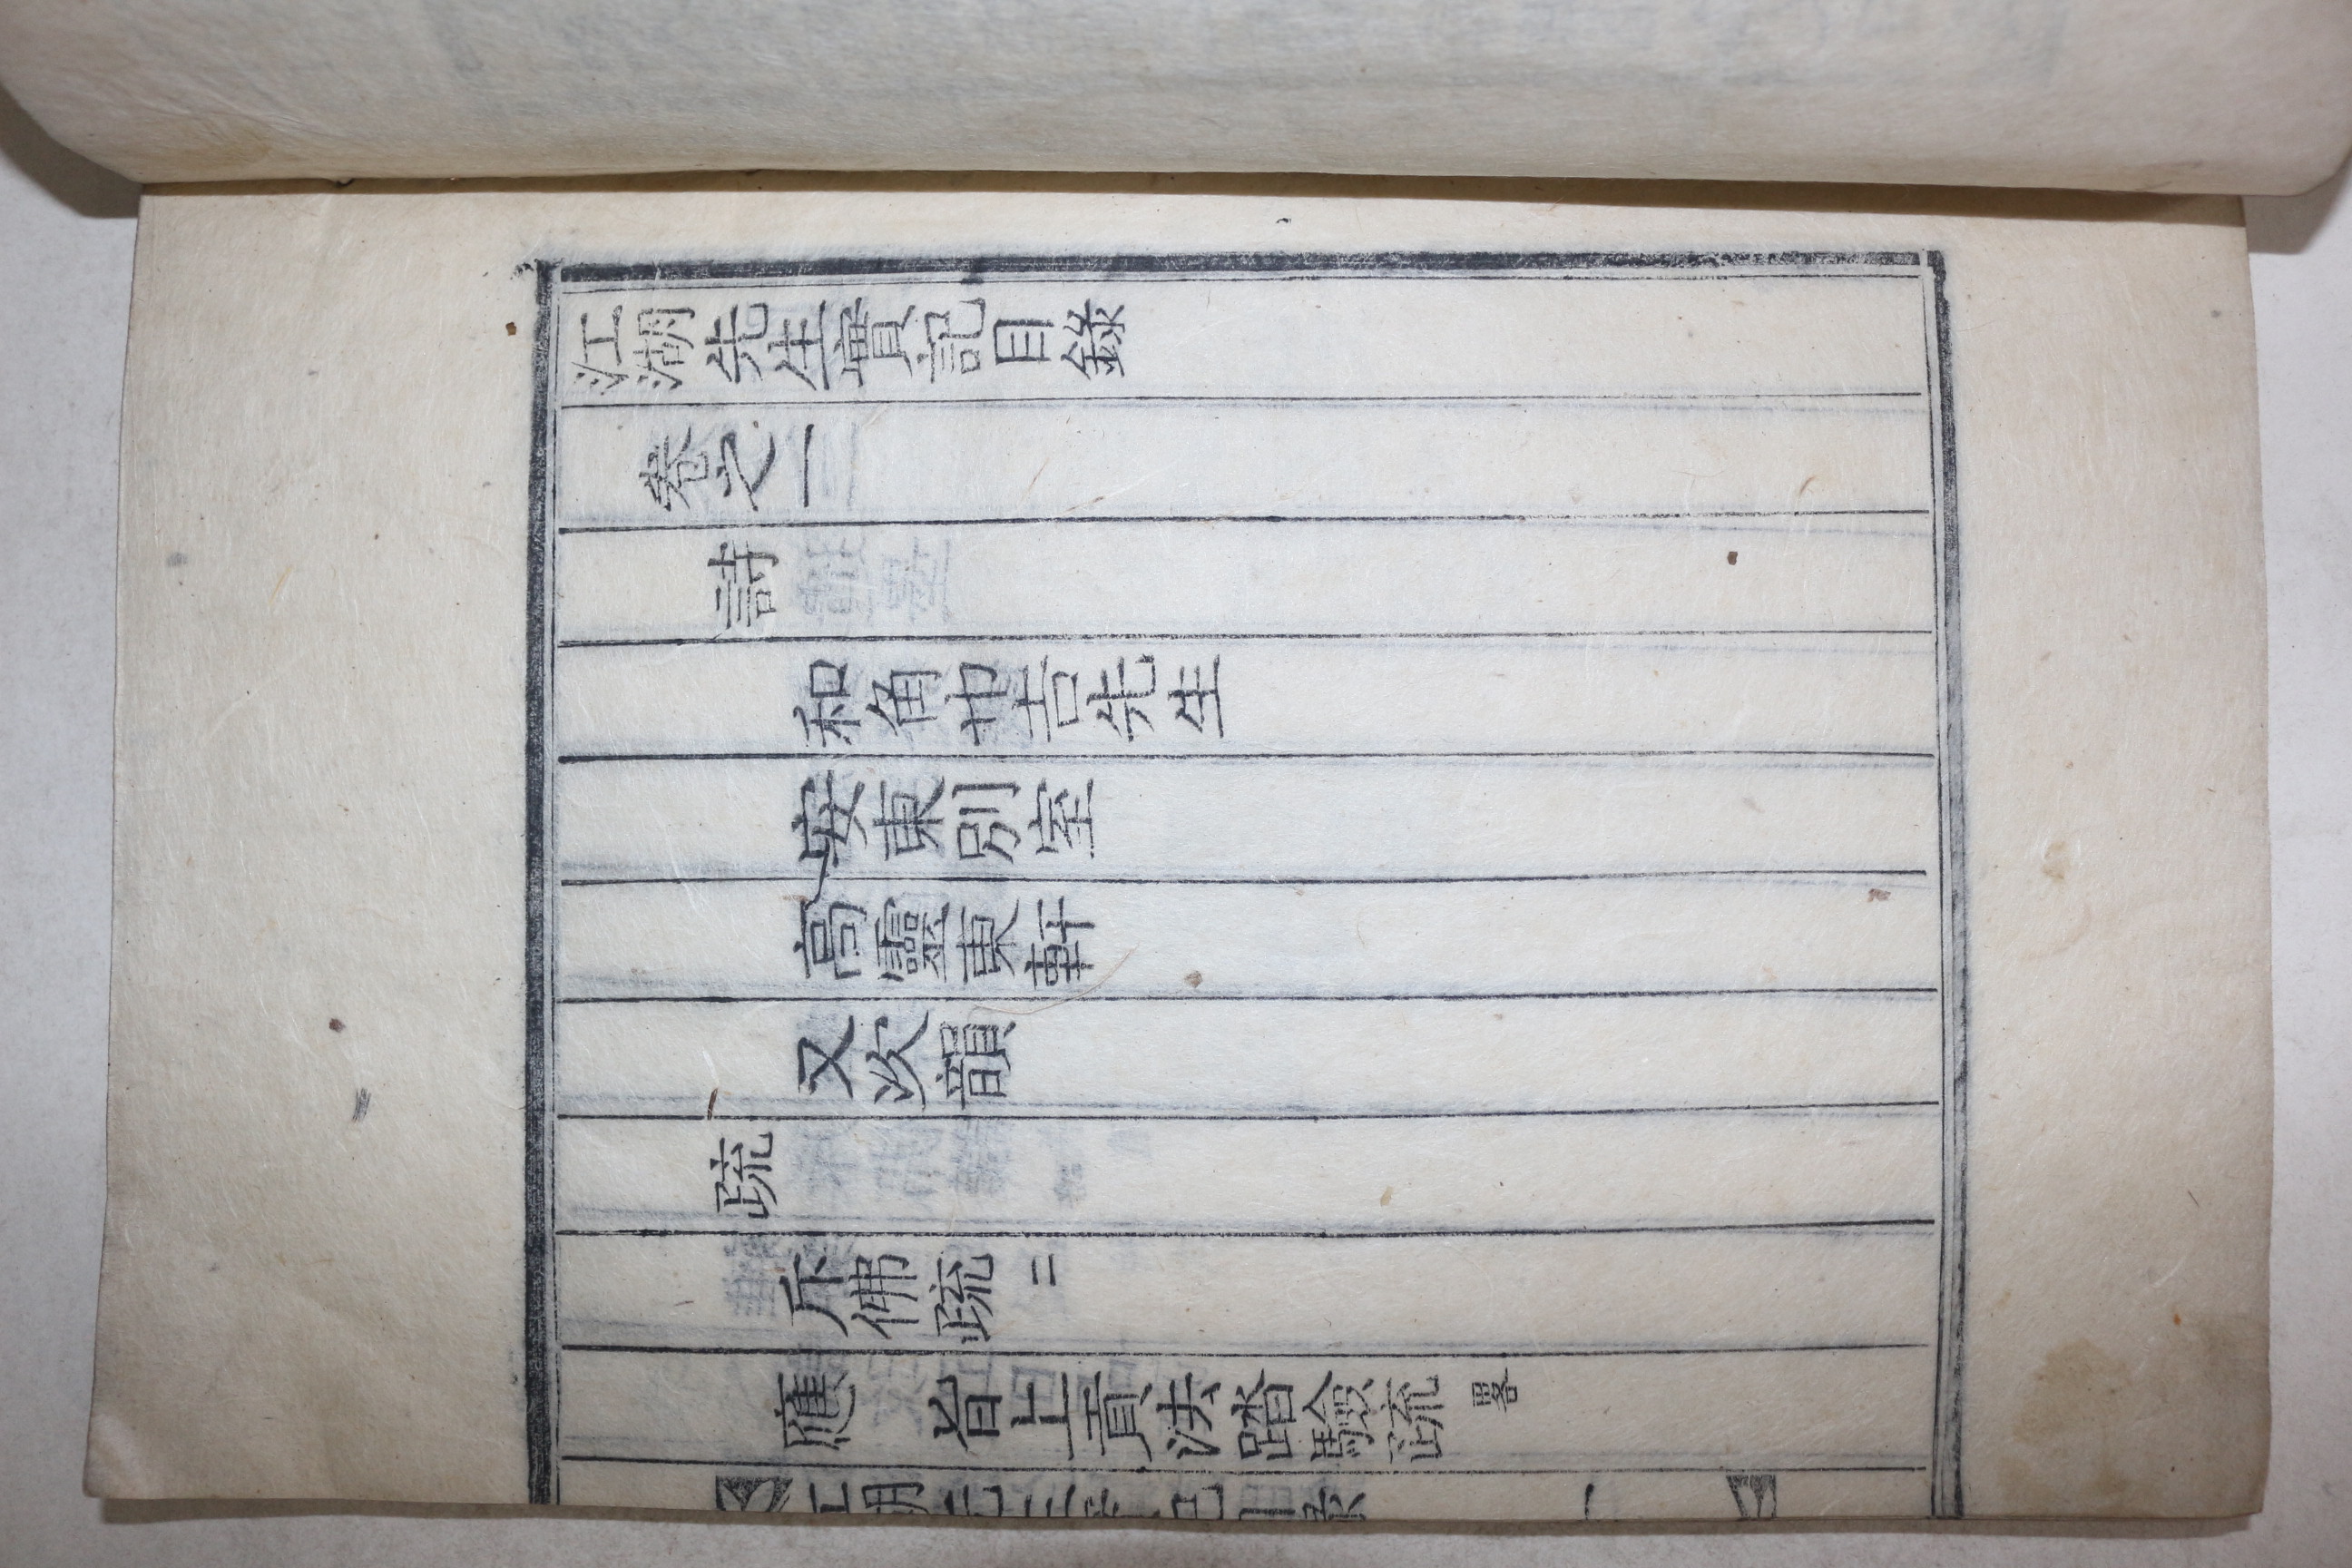 江湖先生實記目錄
卷之一
詩
和角吉先生
安東別室
高靈東軒
又次韻
疏
斥佛疏 二
應 旨上貢法踏驗疏 畧
江湖先生實記目錄 一